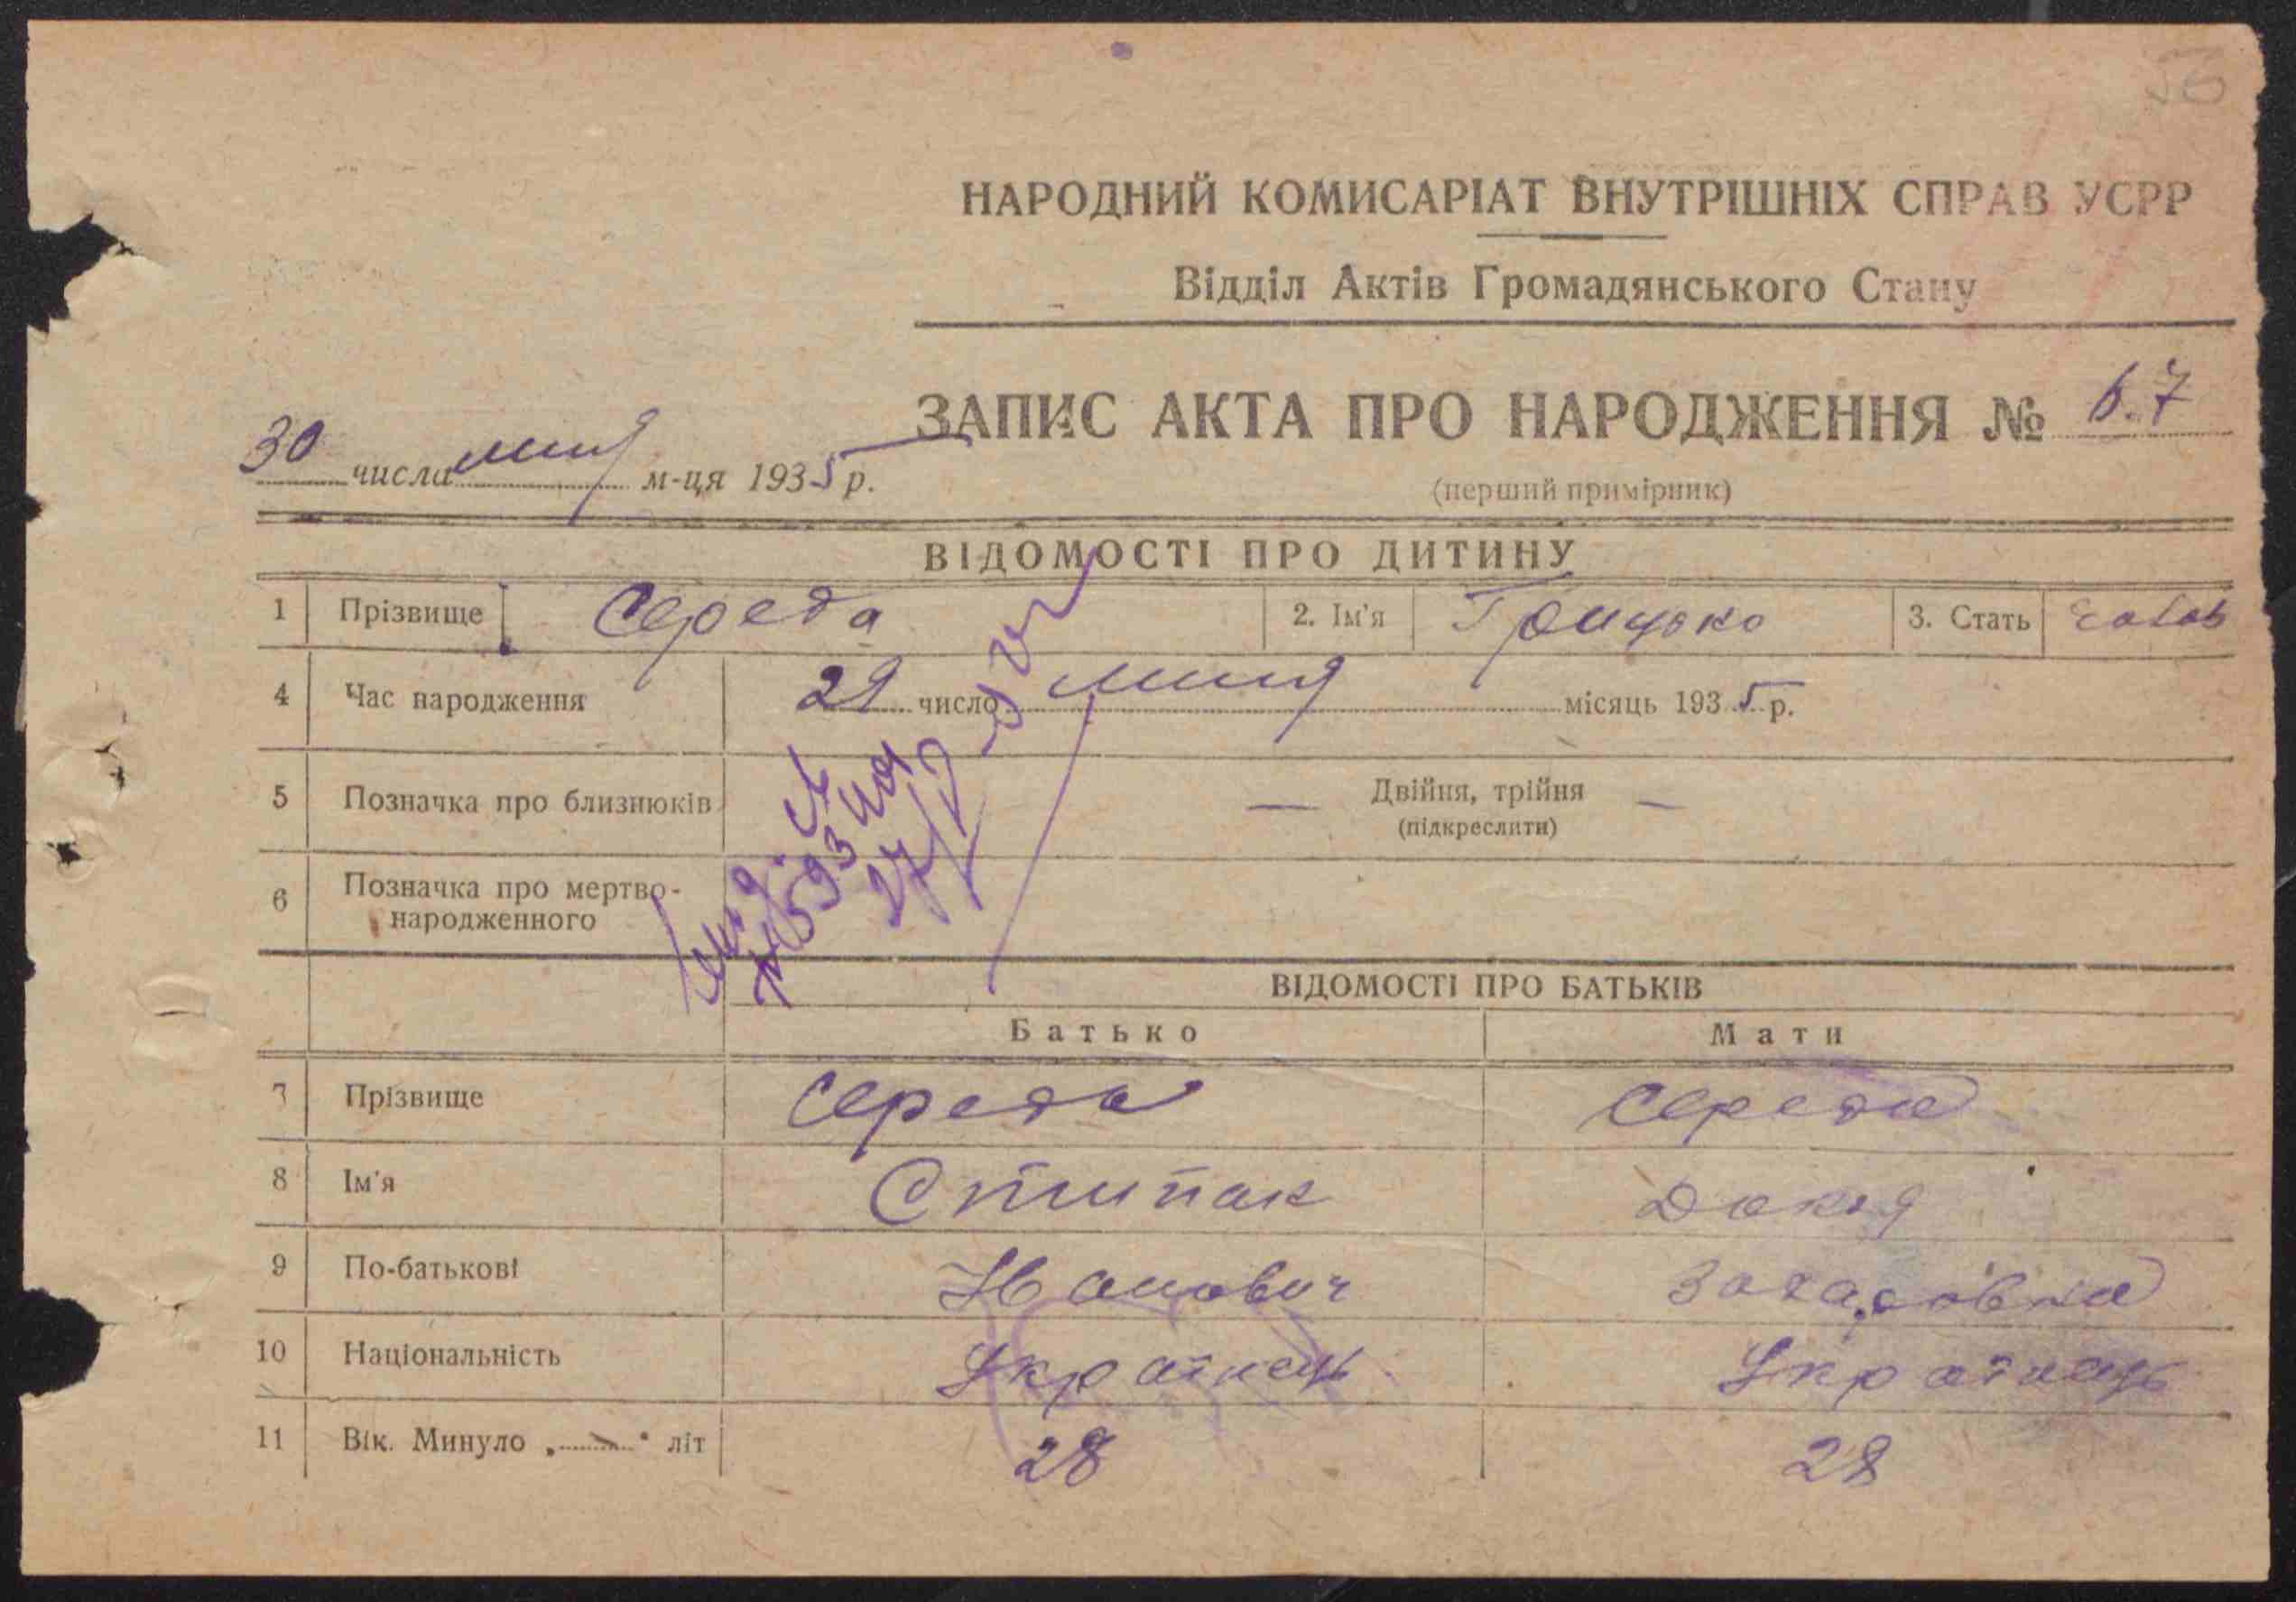 56
НАРОДНИЙ КОМИСАРІАТ ВНУТРІШНІХ СПРАВ УСРР
Відділ Актів Громадянського Стану
ЗАПИС АКТА ПРО НАРОДЖЕННЯ № 67
30 числа мця м-ця 1935 р.
(перший примірник)
ВІДОМОСТІ ПРО ДИТИНУ
1 Прізвище Середа 2. Ім'я Грицько 3. Стать
4 Час народження 29 число місяць 1935 р.
5 Позначка про близнюків — Двійня, трійня —
(підкреслити)
6 Позначка про мертво-
народженного
ВІДОМОСТІ ПРО БАТЬКІВ
Батько Мати
7 Прізвище Середа Середа
8 Ім'я Докія
9 По-батькові
10 Національність Українець Українець
11 Вік. Минуло „ “ літ 28 28